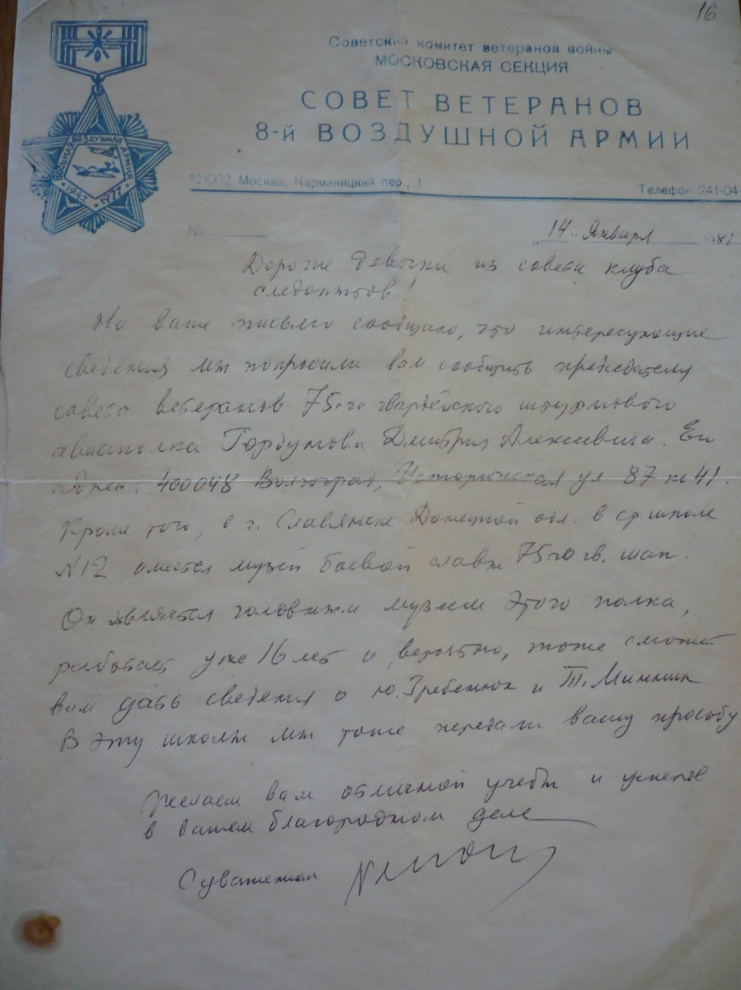 16
Советский комитет ветеранов войны
МОСКОВСКАЯ СЕКЦИЯ
СОВЕТ ВЕТЕРАНОВ
8-й ВОЗДУШНОЙ АРМИИ
ВОСЬМАЯ ВОЗДУШНАЯ АРМИЯ
1942 1977
121002 Москва, Карманицкий пер., 1
Телефон 241-04
№
"14" Января 1981
Дорогие девочки из совета клуба
следопытов!
На ваше письмо сообщаю, что интересующие
сведения мы попросили вам сообщить председателю
совета ветеранов 75-го гвардейского штурмового
авиаполка Горбунова Дмитрия Алексеевича. Его
адрес: 400048 Волгоград, Историческая ул 87 кв 41.
Кроме того, в г. Славянске Донецкой обл. в ср. школе
№12 имеется музей боевой славы 75го гв. шап.
Он является головным музеем этого полка,
работает уже 16 лет и, вероятно, тоже сможет
вам дать сведения о Ю. Гребенюк и Т. Минкин
В эту школы мы тоже передали вашу просьбу
Желаем вам отличной учебы и успехов
в вашем благородном деле
С уважением